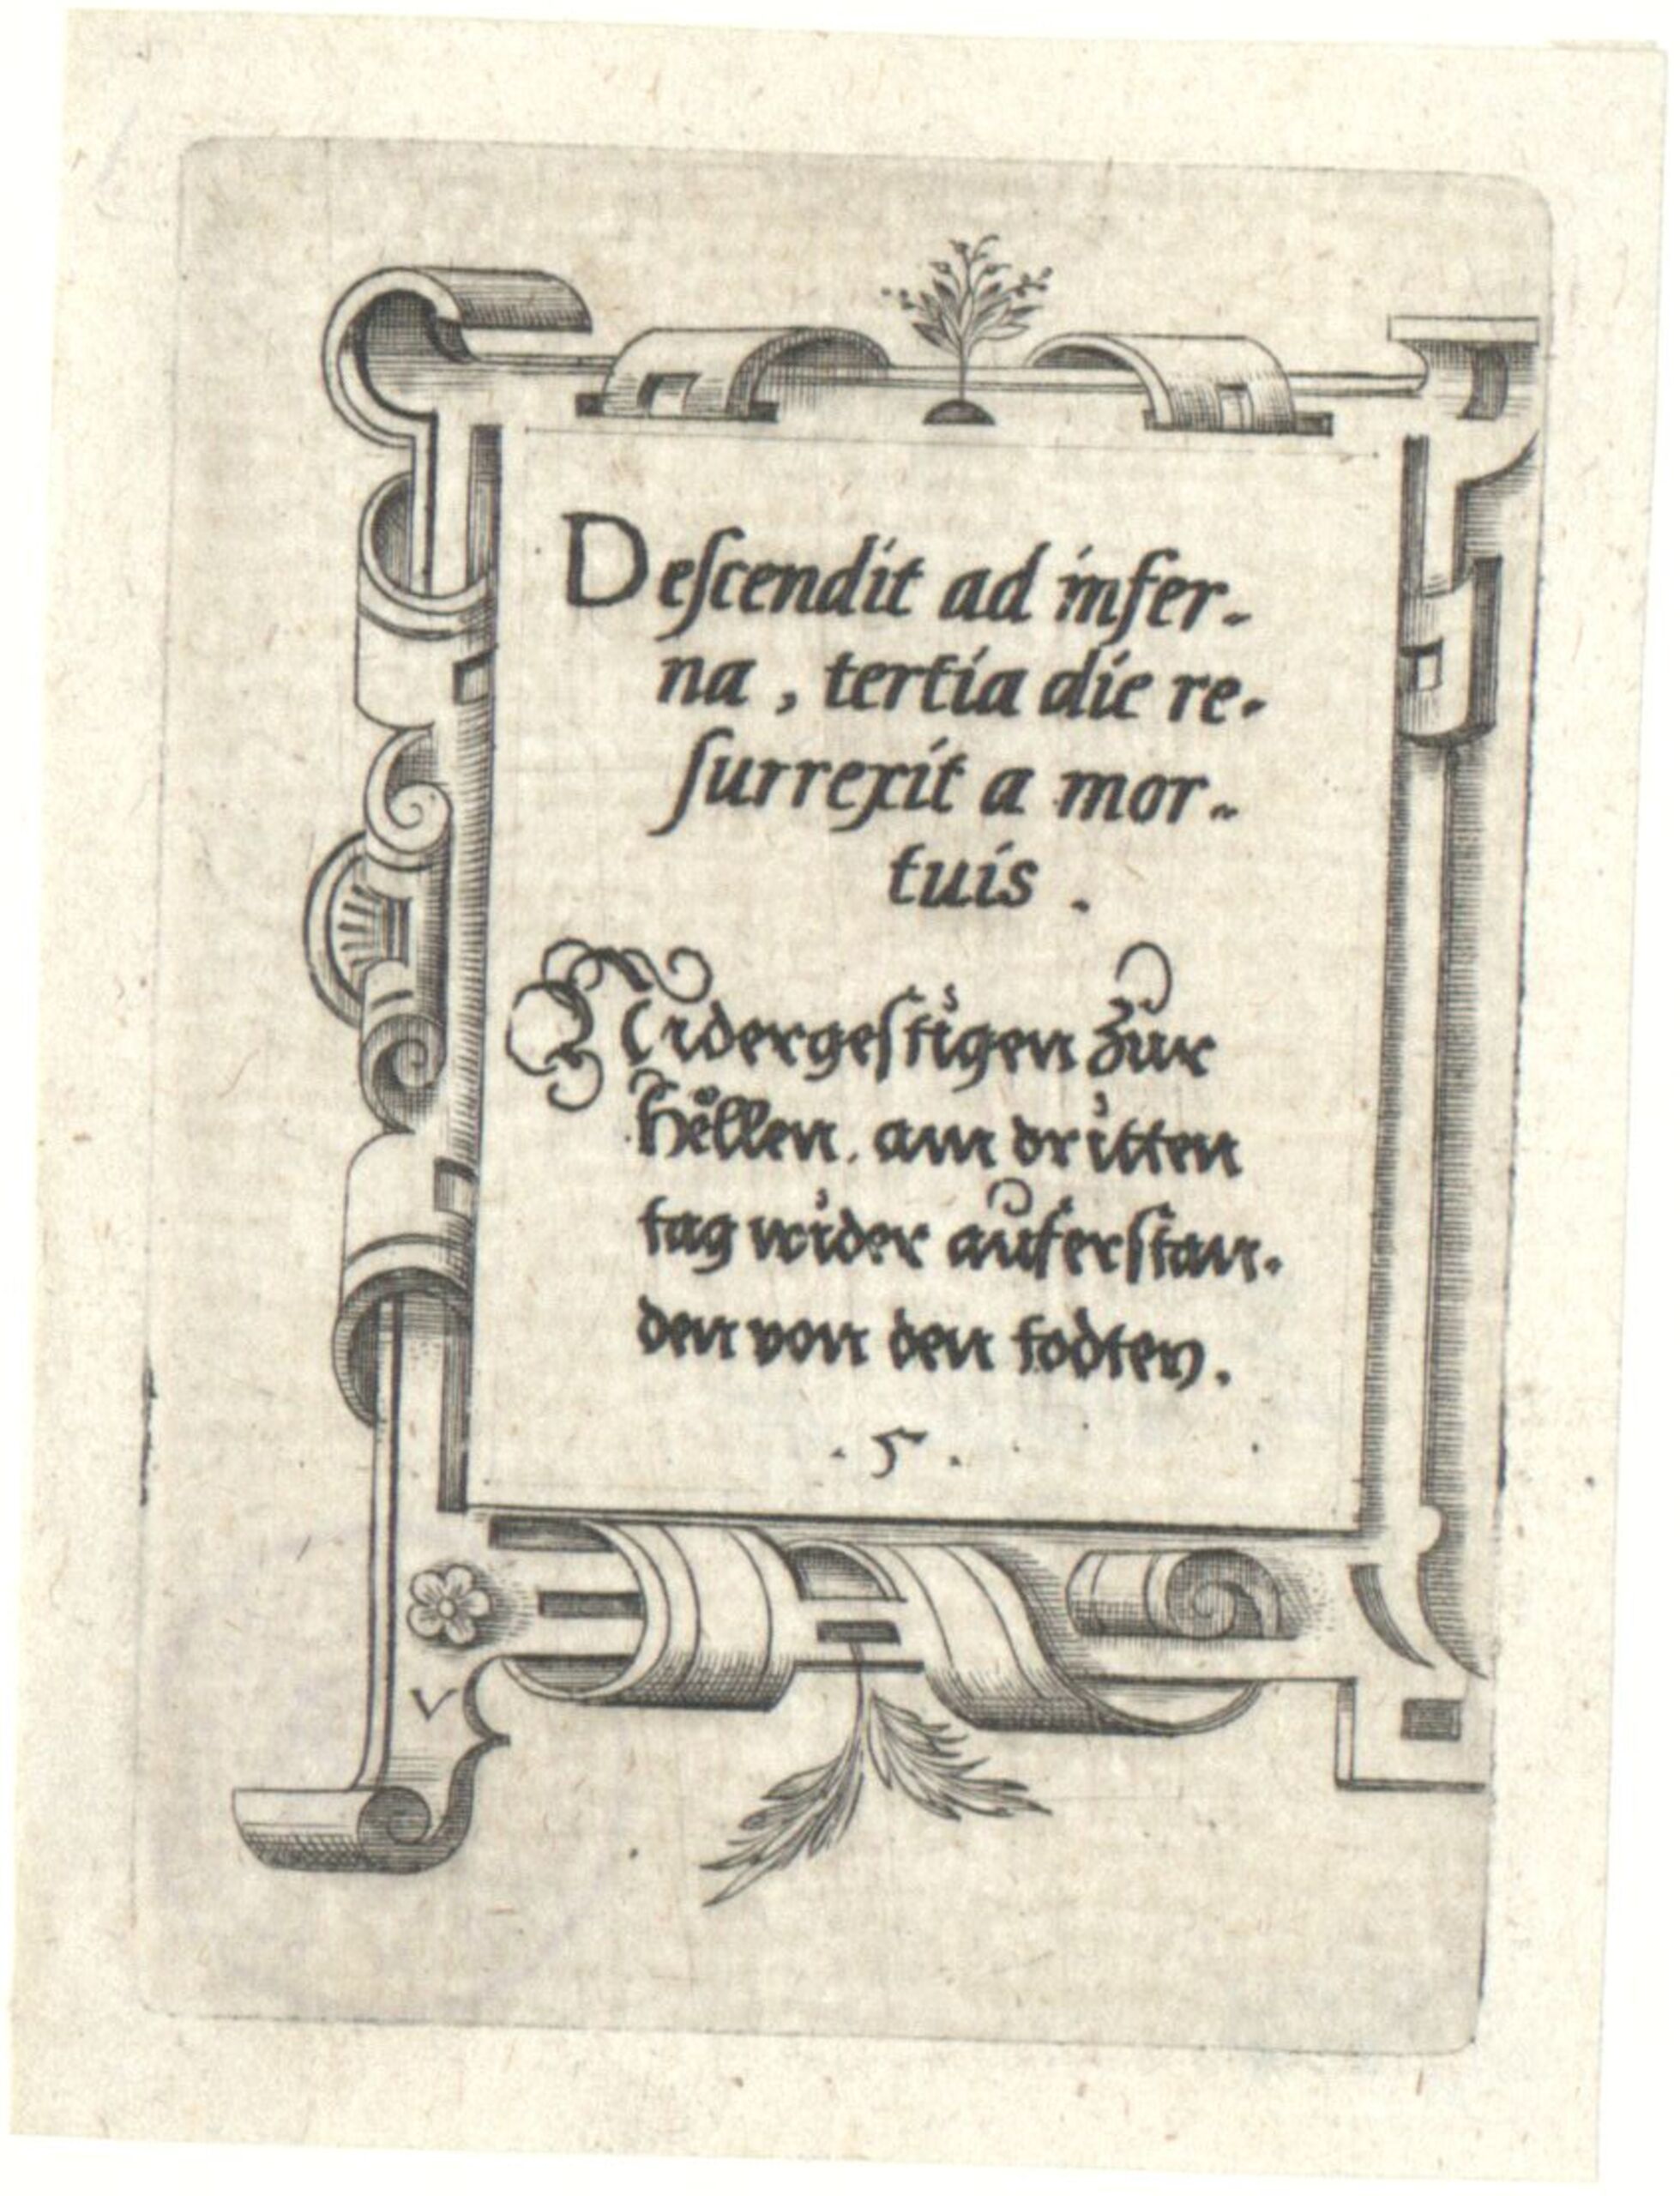 Deſcendit ad infer-
na, tertia die re-
ſurrexit a mor-
tuis.
Nidergeſtigen zur
Hellen. am dritten
tag wider auferſtan-
den von den todten.
. 5 .
V